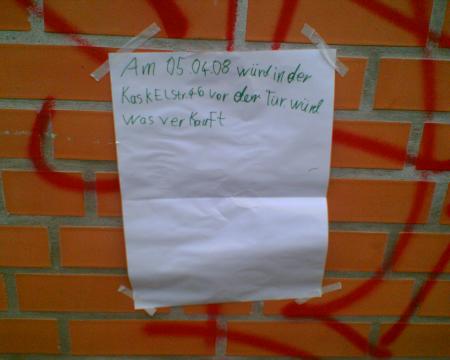 Am 05.04.08 würd in der
KasKELStr.46 vor der Tür würd
was verkauft